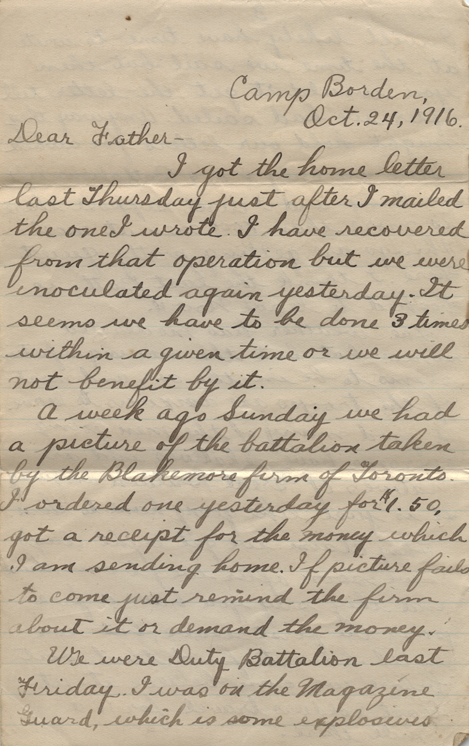 Camp Borden,
Oct. 24, 1916.
Dear Father-
I got the home letter
last Thursday just after I mailed
the one I wrote. I have recovered
from that operation but we were
inoculated again yesterday. It
seems we have to be done 3 times
within a given time or we will
not benefit by it.
A week ago Sunday we had
a picture of the battalion taken
by the Blakemore firm of Toronto.
I ordered one yesterday for $1.50,
got a receipt for the money which
I am sending home. If picture fails
to come just remind the firm
about it or demand the money.
We were Duty Battalion last
Friday. I was on the Magazine
Guard, which is some explosives